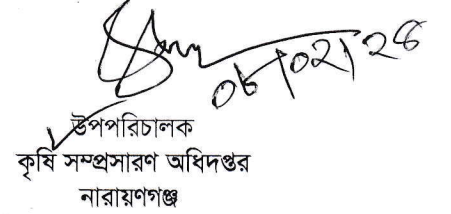 ০৮/০২/২৪
উপপরিচালক
কৃষি সম্প্রসারণ অধিদপ্তর
নারায়ণগঞ্জ